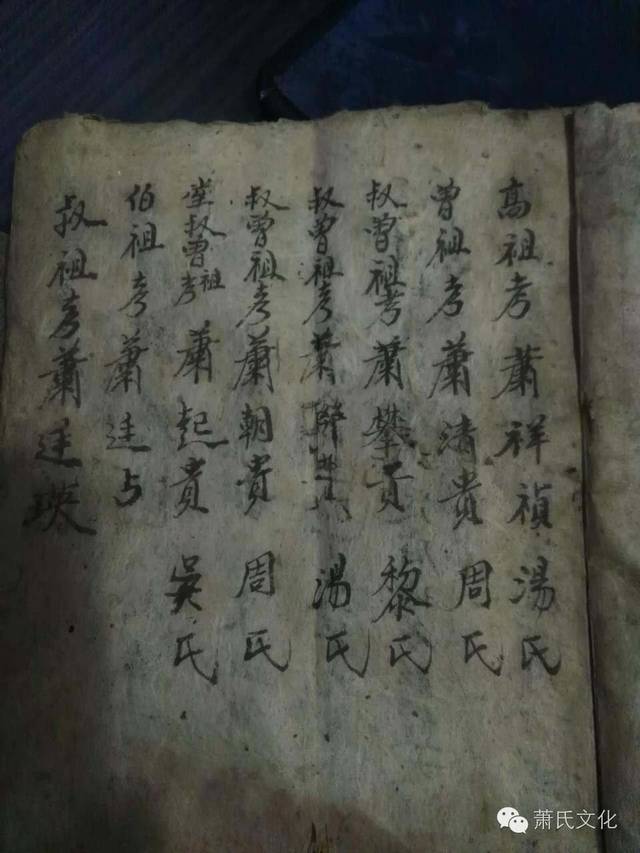 高祖考蕭祥禎 湯氏
曾祖考蕭清貴 周氏
叔曾祖考蕭攀貴 黎氏
叔曾祖考蕭 湯氏
叔曾祖考蕭朝貴 周氏
堂叔曾祖考蕭起貴 吳氏
伯祖考蕭廷
叔祖考蕭廷瑛
萧氏文化